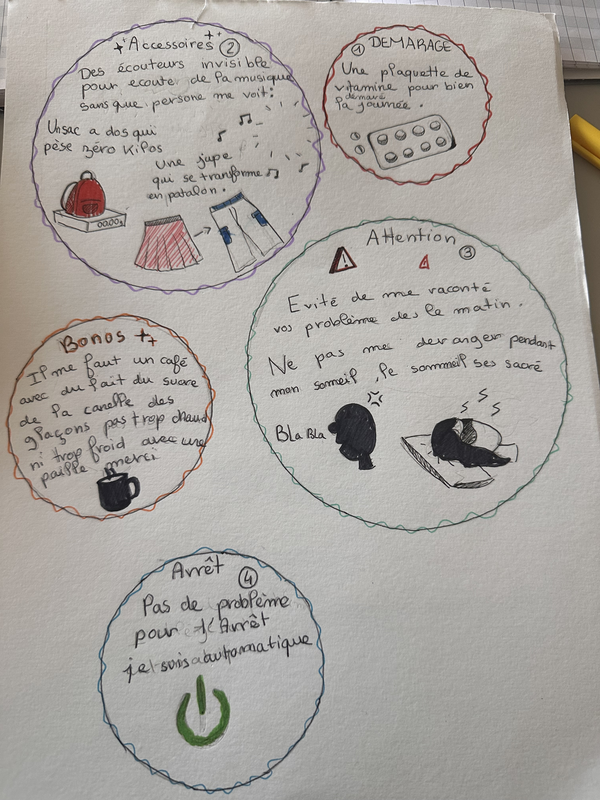 ① DEMARAGE
Une plaquette de
vitamine pour bien
demaré
la journée.
Accessoires ②
Des écouteurs invisible
pour ecouter de la musique
sans que persone me voit:
Un sac a dos qui
pèse zéro Kilos
Une jupe
qui se tranforme
en patalon.
00,00g
Attention
③
Evité de me raconté
vos problème des le matin.
Ne pas me deranger pendant
mon someil, le sommeil ses sacré
BLa BLa
Bonos ++
Il me faut un café
avec du lait du sucre
de la canelle des
glaçons pas trop chaud
ni trop froid avec une
paille merci
Arrêt
④
Pas de problème
pour l'Arrêt
je suis automatique